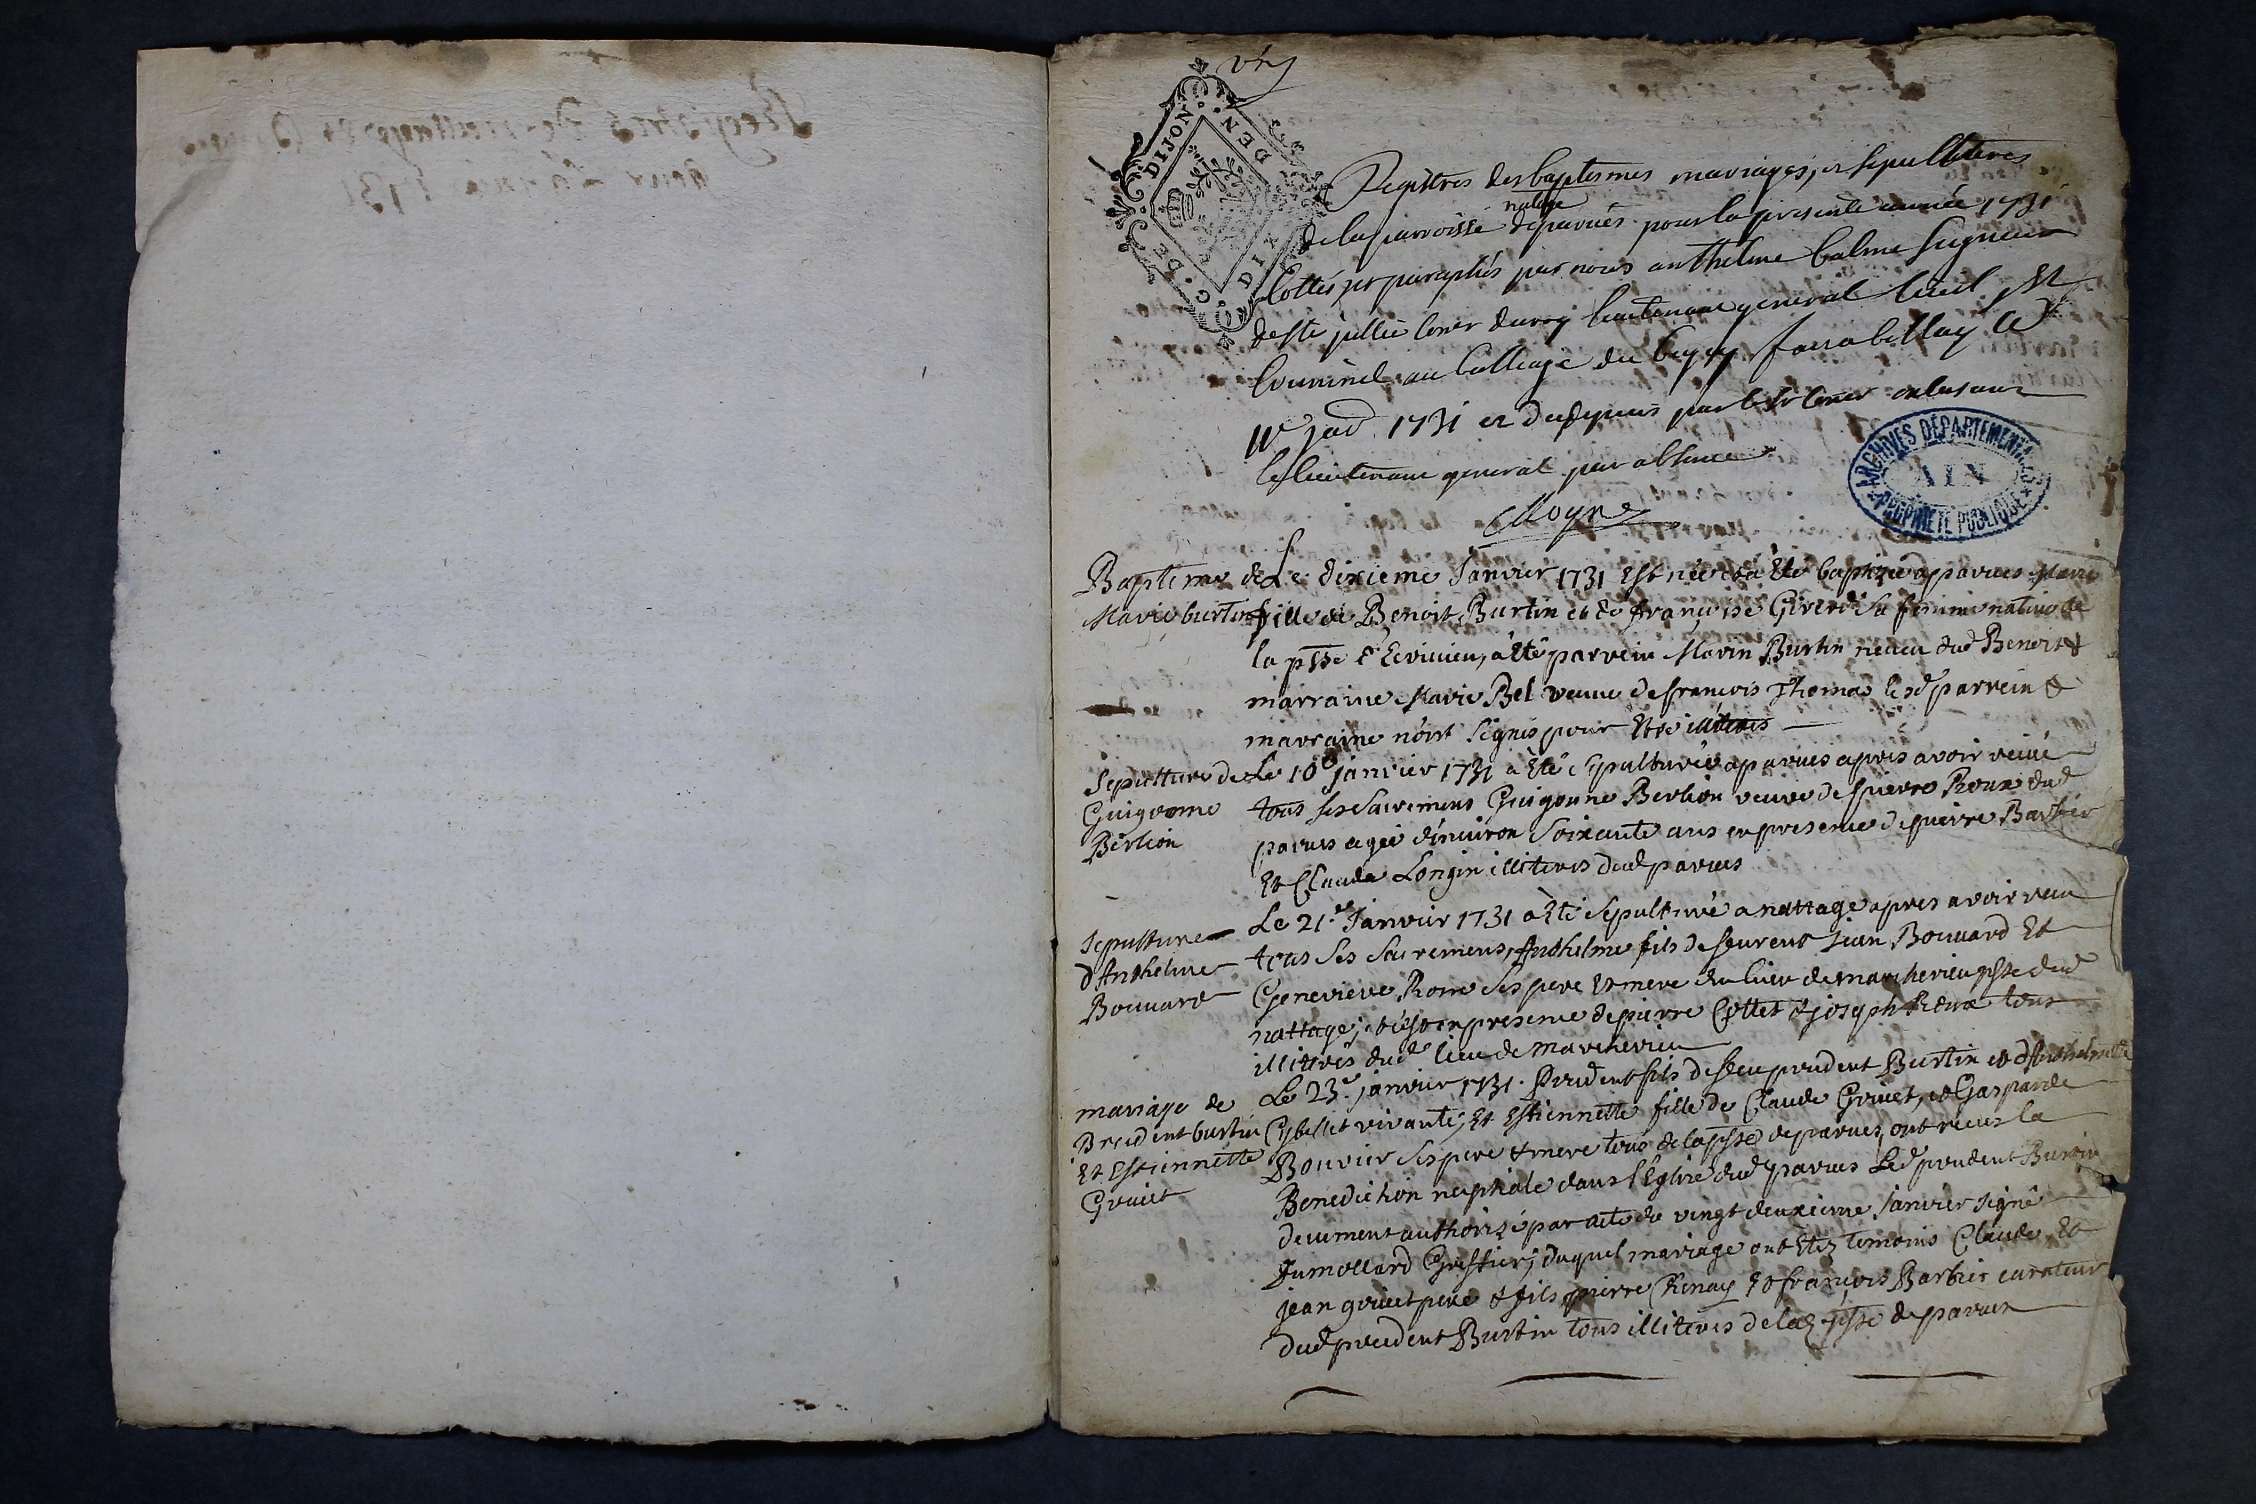 vn
G. DE DIJON
DEN
DIX
Registres des baptesmes mariages, et sepultures
nattage
de la parroisse de parves pour la presente année 1731
Cottés, et paraphés par nous anthelme balme seigneur
de ste jullie Coner du roy lieutenant general Civil Et
Criminel au balliage du bugey a bellay Ce
1731 et depuis par le Sr Coner
le lieutenant general par absence
Moyne
ARCHIVES DÉPARTEMENTALES
AIN
PROPRIÉTÉ PUBLIQUE
Bapteme de
Marie burtin
Le dixieme Janvier 1731 est née et a Eté baptizée a parves Marie
fille de Benoit Burtin et de françoise Girerd sa femme native de
la psse d'Evieu, a Eté parrein Marin Burtin neveu dud Benoit &
marraine Marie Bel veuve de françois Thomas lesd parrein &
marraine n'ont signés pour Etre illiteres
Sepulture de
Guigonne
Berlion
Le 10e janvier 1731 a Eté sepulturée a parves apres avoir receu
tous ses sacremens Guigonne Berlion veuve de pierre Roux dud
parves agée d'environ soixante ans en presence de pierre Barbier
Et Claude Longin illiteres dud parves
Sepulture
d'Anthelme
Bouvard
Le 21.e Janvier 1731 a Eté sepulturé a nattage apres avoir receu
tous ses sacremens, Anthelme fils de Jean Bouvard Et
Genevieve Rome ses pere Et mere du lieu de marcherieu psse dud
nattage, et c'est en presence de pierre Collet & joseph Roux tous
illittrés dud lieu de marcherieu
mariage de
Prudent burtin
Et Estiennette
Grivet
Le 23.e janvier 1731. Prudent fils de feu prudent Burtin et d'Anthelmette
Gybellet vivante, Et Estiennette fille de Claude Grivet, et Gasparde
Bouvier ses pere & mere tous de la psse de parves, ont receus la
Benediction nuptiale dans l'Eglise dud parves Led prudent Burtin
deument authorizé par acte du vingt deuxieme Janvier signé
Dumollard Greffier; duquel mariage ont Etez temoins Claude, Et
jean grivet pere & fils, pierre Et françois Barbier curateur
dud prudent Burtin tous illiteres de lad psse de parves